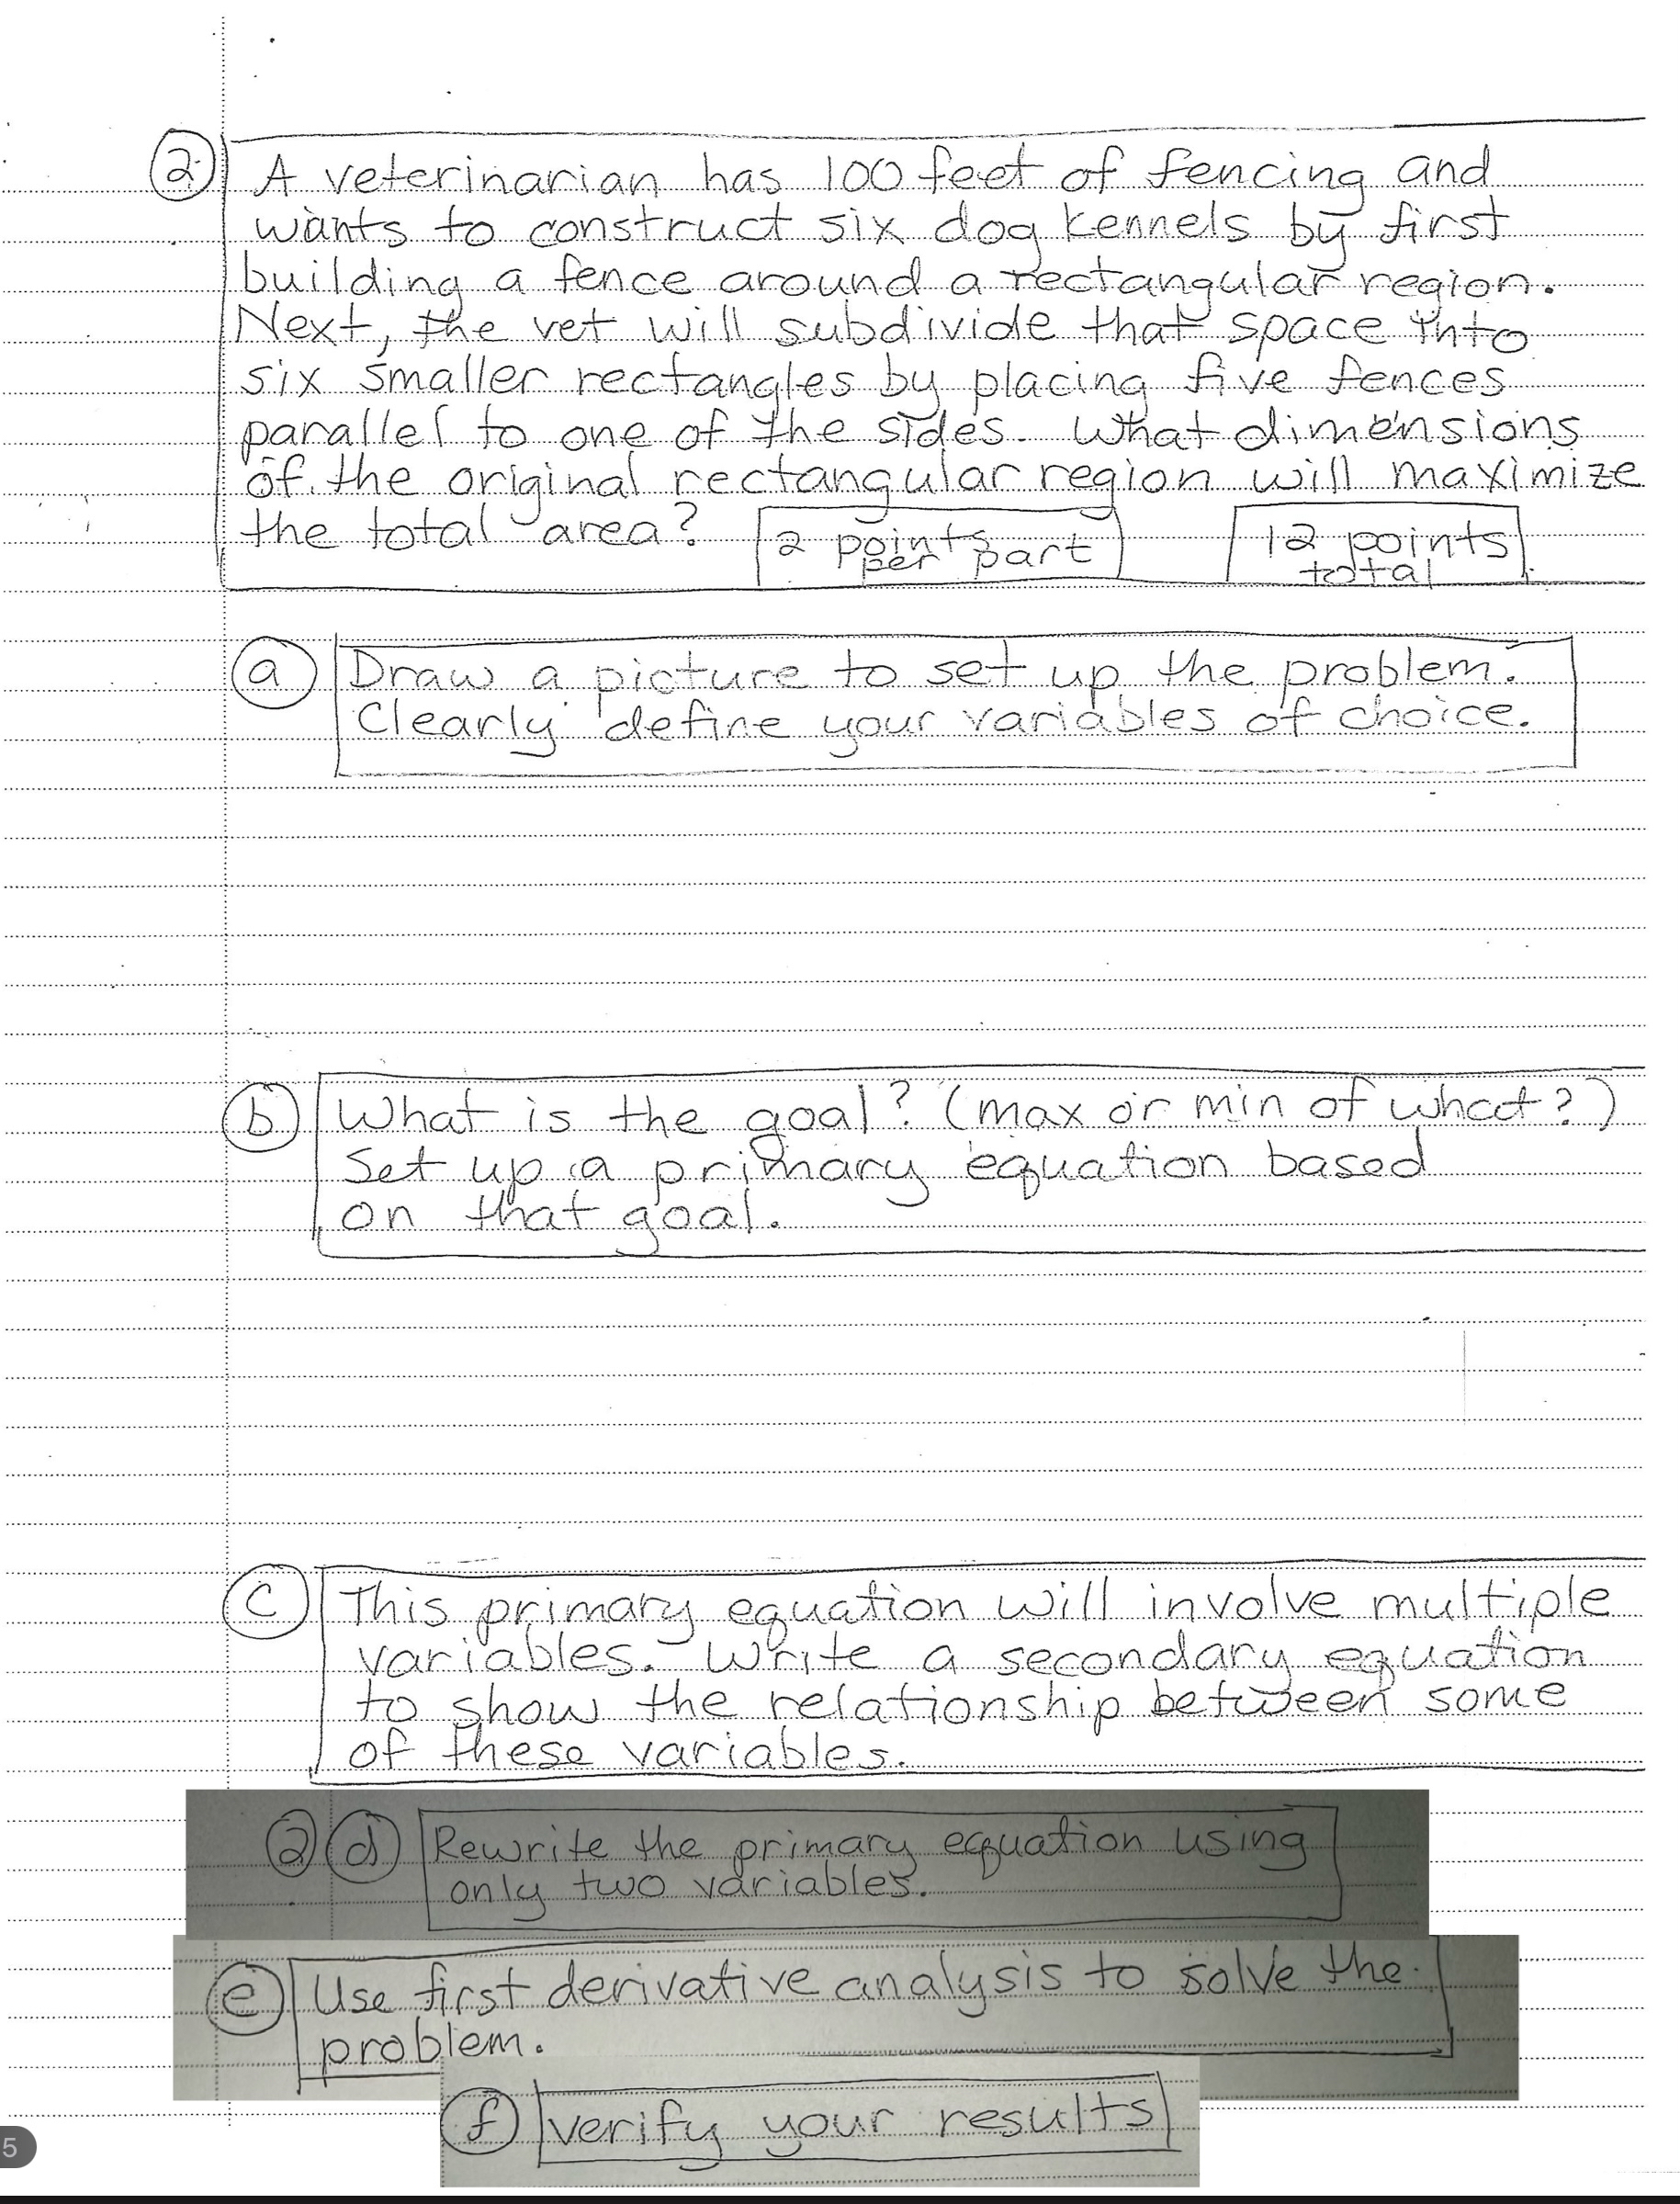 2 A veterinarian has 100 feet of fencing and
wants to construct six dog kennels by first
building a fence around a rectangular region.
Next, the vet will subdivide that space into
six smaller rectangles by placing five fences
parallel to one of the sides. What dimensions
of the original rectangular region will maximize
the total area? 2 points per part 12 points total
a Draw a picture to set up the problem.
Clearly define your variables of choice.
b What is the goal? (max or min of what?)
Set up a primary equation based
on that goal.
c This primary equation will involve multiple
variables. Write a secondary equation
to show the relationship between some
of these variables.
2 d Rewrite the primary equation using
only two variables.
e Use first derivative analysis to solve the
problem.
f verify your results
5